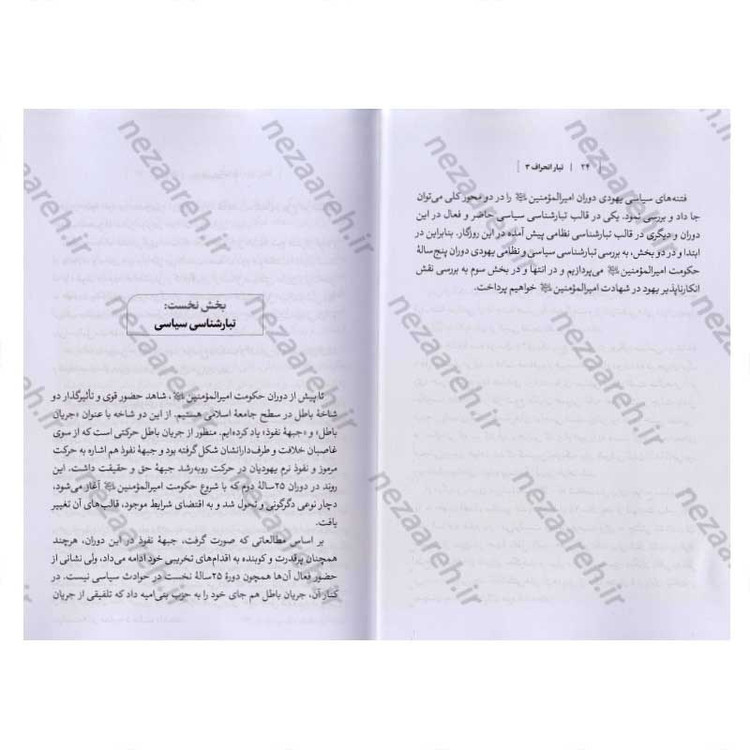 ۲۴ | تبار انحراف ۳
فتنه‌های سیاسی یهودی دوران امیرالمؤمنین ﷷ را در دو محور کلی می‌توان
جا داد و بررسی نمود. یکی در قالب تبارشناسی سیاسی حاضر و فعال در این
دوران و دیگری در قالب تبارشناسی نظامی پیش آمده در این روزگار. بنابراین در
ابتدا و در دو بخش، به بررسی تبارشناسی سیاسی و نظامی یهودی دوران پنج‌سالهٔ
حکومت امیرالمؤمنین می‌پردازیم و در انتها و در بخش سوم به بررسی نقش
انکارناپذیر یهود در شهادت امیرالمؤمنین خواهیم پرداخت.
بخش نخست:
تبارشناسی سیاسی
تا پیش از دوران حکومت امیرالمؤمنین، شاهد حضور قوی و تأثیرگذار دو
شاخهٔ باطل در سطح جامعهٔ اسلامی هستیم. از این دو شاخه با عنوان «جریان
باطل» و «جبههٔ نفوذ» یاد کرده‌ایم. منظور از جریان باطل حرکتی است که از سوی
غاصبان خلافت و طرف‌دارانشان شکل گرفته بود و جبههٔ نفوذ هم اشاره به حرکت
مرموز و نفوذ نرم یهودیان در حرکت روبه‌رشد جبههٔ حق و حقیقت داشت. این
روند در دوران ۲۵سالهٔ دوم که با شروع حکومت امیرالمؤمنین آغاز می‌شود،
دچار نوعی دگرگونی و تحول شد و به اقتضای شرایط موجود، قالب‌های آن تغییر
یافت.
بر اساس مطالعاتی که صورت گرفت، جبههٔ نفوذ در این دوران، هرچند
همچنان پرقدرت و کوبنده به اقدام‌های تخریبی خود ادامه می‌داد، ولی نشانی از
حضور فعال آن‌ها همچون دورهٔ ۲۵سالهٔ نخست در حوادث سیاسی نیست. در
کنار آن، جریان باطل هم جای خود را به حزب بنی‌امیه داد که تلفیقی از جریان
nezaareh.ir
nezaareh.ir
nezaareh.ir
nezaareh.ir
nezaareh.ir
nezaareh.ir
nezaareh.ir
nezaareh.ir
nezaareh.ir
nezaareh.ir
nezaareh.ir
nezaareh.ir